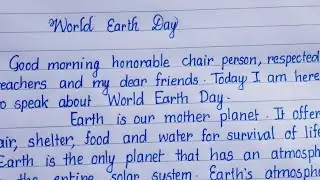 World Earth Day
Good morning honorable chair person, respected
eachers and my dear friends. Today I am here
o speak about World Earth Day.
Earth is our mother planet. It offer
air, shelter, food and water for survival of life
Earth is the only planet that has an atmosph
the entire solar system. Earth's atmosphe